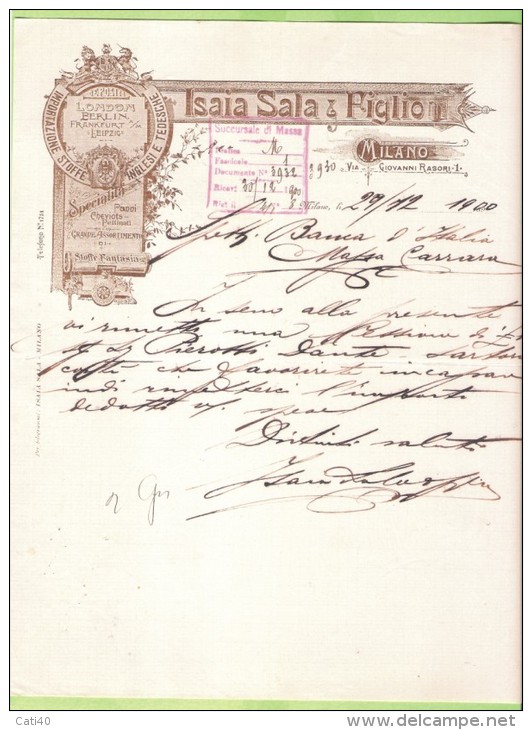 DEPOSITI
LONDON
BERLIN
FRANKFURT s/M
LEIPZIG
IMPORTAZIONE STOFFE INGLESI E TEDESCHE
Specialità
Paggi
Cheviots
Pettinati
GRANDE ASSORTIMENTO
DI
Stoffe Fantasia
Isaia Sala & Figlio
MILANO
VIA GIOVANNI RASORI·1·
Succursale di Massa
M
Fascicolo 1
Documento N° 3932
Ricev. 30/12 900
3930
Milano, li 29/12 1900
Spett. Banca d'Italia
Massa Carrara
In seno alla presente
vi rimetto una
Pierotti Dante Sarto
costì che favorirete incassare
indi rimettere l'importo
dedotto le spese
Distinti saluti
Isaia Sala & Figlio
Telefono N.
ISAIA SALA - MILANO
Cati40
www.delcampe.net